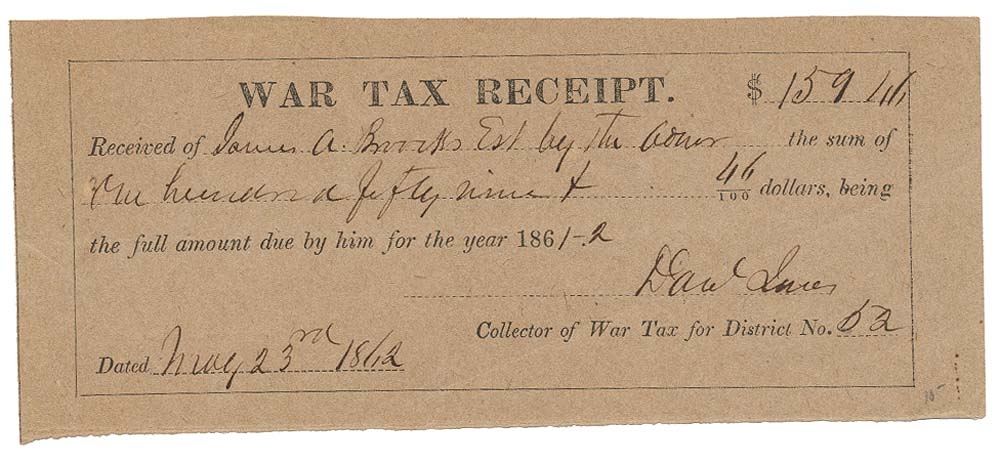 WAR TAX RECEIPT. $ 159 46
Received of James A. Brooks Est by the the sum of
One hundred fifty nine & 46/100 dollars, being
the full amount due by him for the year 1861-2
Collector of War Tax for District No. 52
Dated May 23rd 1862